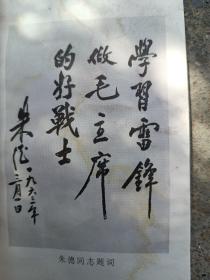 學習雷鋒
做毛主席
的好戰士
朱德
一九六三年
三月一日
朱德同志题词